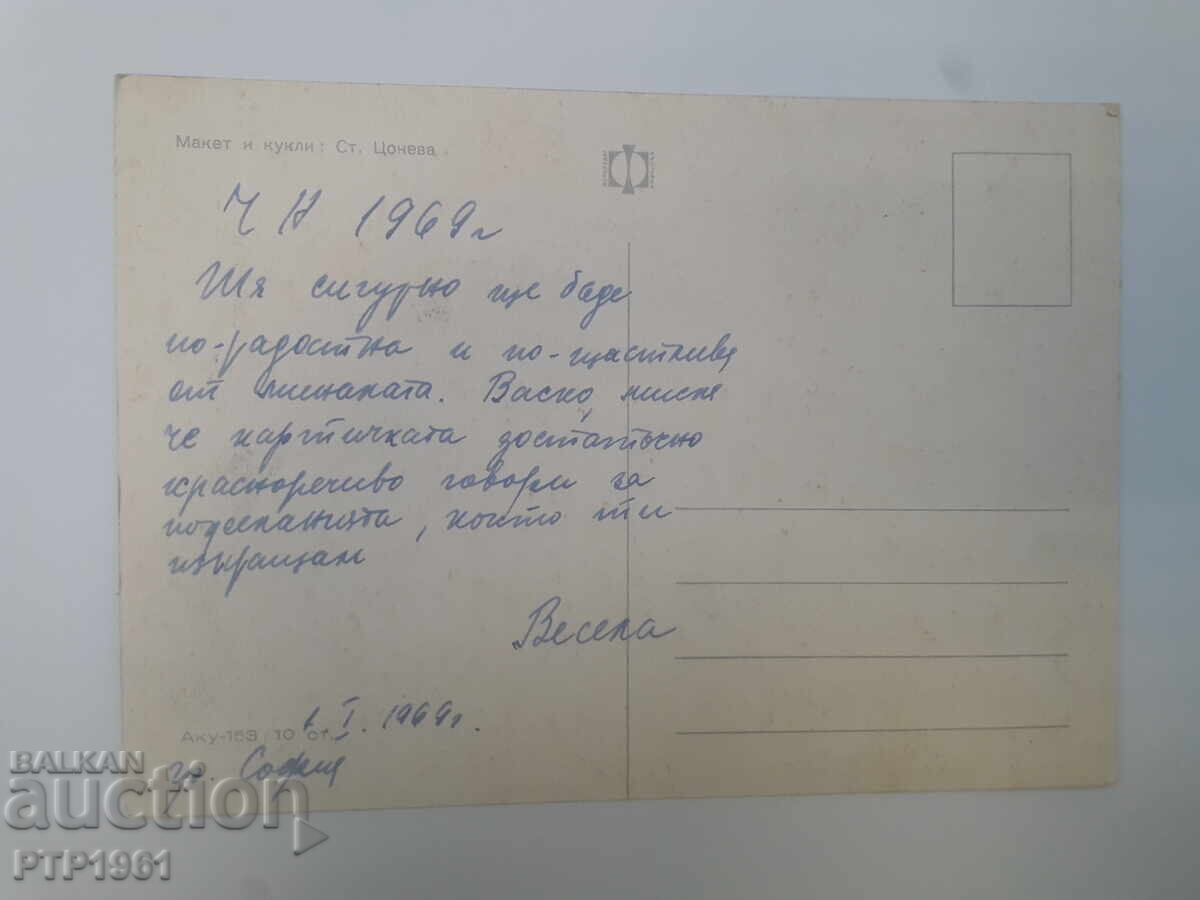 Макет и кукли: Ст. Цонева
Ч Н 1969 г
Тя сигурно ще баде
по-радостна и по-щастлива
от миналата. Васко, мисля
че картичката достатъчно
красноречиво говори за
пожеланията, които ти
изпращам
Весела
Аку-153 10 ст.
1. I. 1969 г.
гр. София
BALKAN
auction
PTP1961